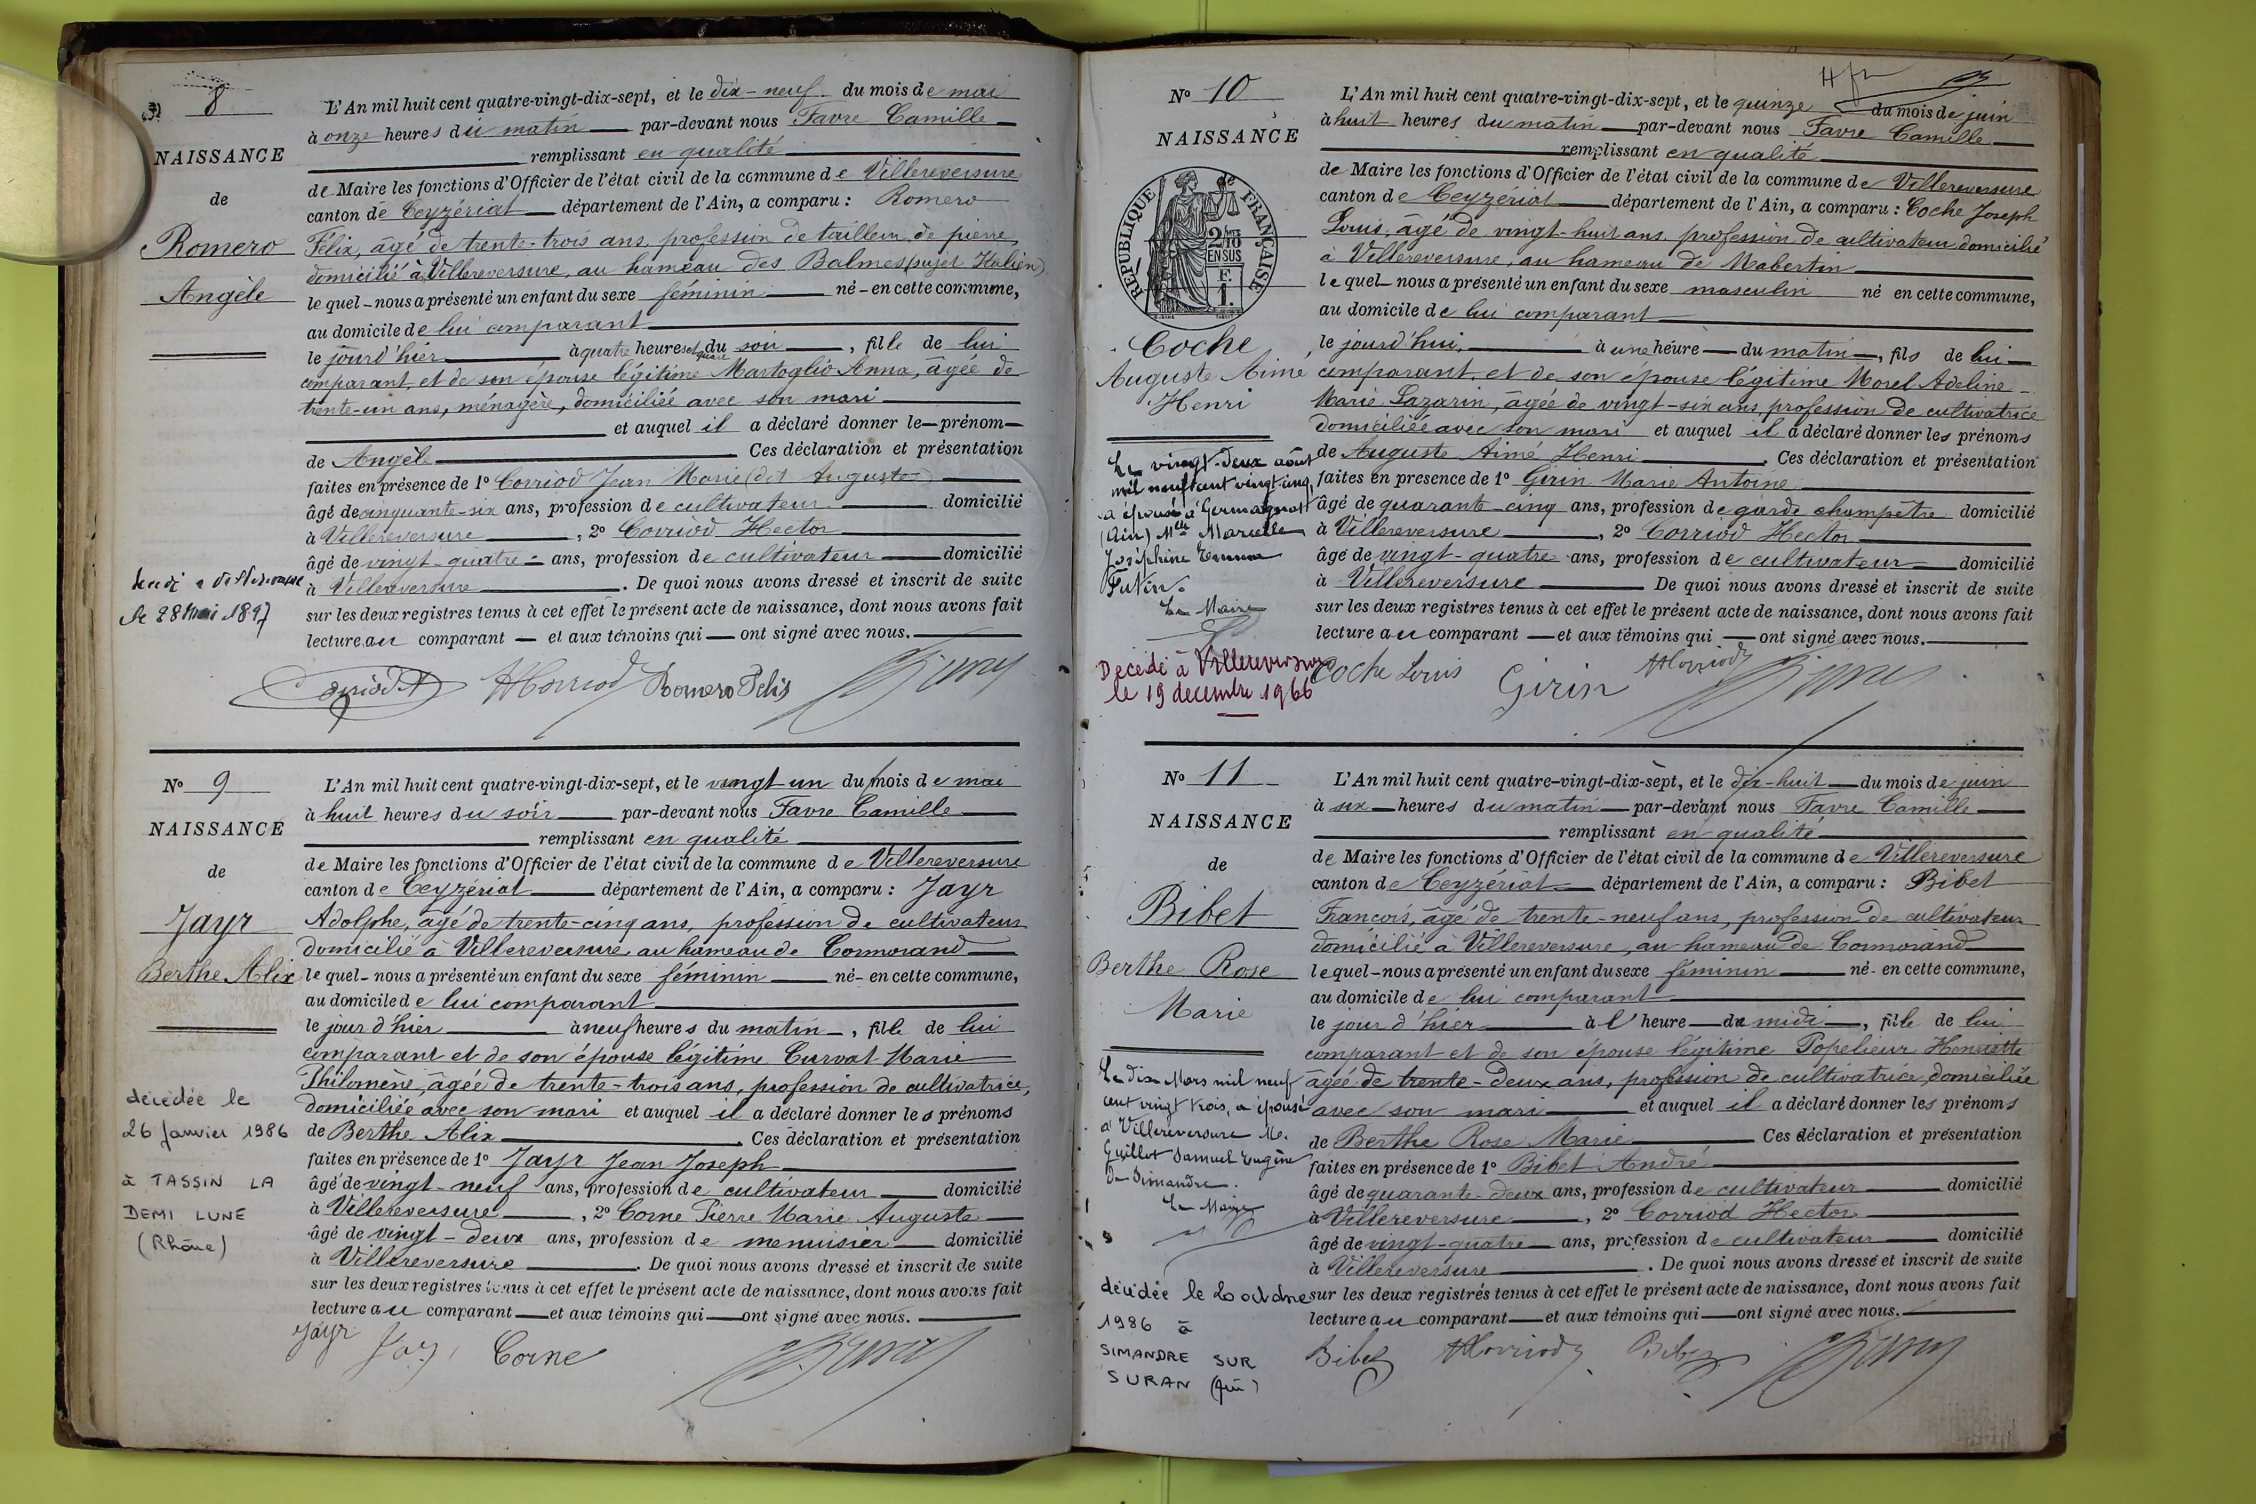 N° 8
NAISSANCE
de
Romero
Angèle
L'An mil huit cent quatre-vingt-dix-sept, et le dix-neuf du mois de mai
à onze heures du matin par-devant nous Favre Camille
remplissant en qualité
de Maire les fonctions d'Officier de l'état civil de la commune de Villereversure
canton de Ceyzériat département de l'Ain, a comparu : Romero
Félix, âgé de trente-trois ans, profession de tailleur de pierre,
domicilié à Villereversure, au hameau des Balmes (sujet Italien)
lequel nous a présenté un enfant du sexe féminin né en cette commune,
au domicile de lui comparant
le jour d'hier à quatre heures et quart du soir, fille de lui
comparant, et de son épouse légitime Martoglio Anna, âgée de
trente-un ans, ménagère, domiciliée avec son mari
et auquel il a déclaré donner le prénom
de Angèle Ces déclaration et présentation
faites en présence de 1° Corriod Jean Marie (dit Auguste)
âgé de cinquante-six ans, profession de cultivateur domicilié
à Villereversure, 2° Corriod Hector
âgé de vingt-quatre ans, profession de cultivateur domicilié
à Villereversure. De quoi nous avons dressé et inscrit de suite
sur les deux registres tenus à cet effet le présent acte de naissance, dont nous avons fait
lecture au comparant et aux témoins qui ont signé avec nous.
le 28 Mai 1897
Corriod A HCorriod Romero Felis
N° 9
NAISSANCE
de
Jayr
Berthe Alix
L'An mil huit cent quatre-vingt-dix-sept, et le vingt un du mois de mai
à huit heures du soir par-devant nous Favre Camille
remplissant en qualité
de Maire les fonctions d'Officier de l'état civil de la commune de Villereversure
canton de Ceyzériat département de l'Ain, a comparu : Jayr
Adolphe, âgé de trente-cinq ans, profession de cultivateur
domicilié à Villereversure au hameau de Cormorand
lequel nous a présenté un enfant du sexe féminin né en cette commune,
au domicile de lui comparant
le jour d'hier à neuf heures du matin, fille de lui
comparant et de son épouse légitime Curvat Marie
Philomène, âgée de trente-trois ans, profession de cultivatrice,
domiciliée avec son mari et auquel il a déclaré donner les prénoms
de Berthe Alix. Ces déclaration et présentation
faites en présence de 1° Jayr Jean Joseph
âgé de vingt-neuf ans, profession de cultivateur domicilié
à Villereversure, 2° Corne Pierre Marie Auguste
âgé de vingt-deux ans, profession de menuisier domicilié
à Villereversure. De quoi nous avons dressé et inscrit de suite
sur les deux registres tenus à cet effet le présent acte de naissance, dont nous avons fait
lecture au comparant et aux témoins qui ont signé avec nous.
décédée le
26 janvier 1986
à TASSIN LA
DEMI LUNE
(Rhône)
Jayr Jay Corne
N° 10
NAISSANCE
de
RÉPUBLIQUE FRANÇAISE
2/10
EN SUS
Coche
Auguste Aimé
Henri
L'An mil huit cent quatre-vingt-dix-sept, et le quinze du mois de juin
à huit heures du matin par-devant nous Favre Camille
remplissant en qualité
de Maire les fonctions d'Officier de l'état civil de la commune de Villereversure
canton de Ceyzériat département de l'Ain, a comparu : Coche Joseph
Louis, âgé de vingt-huit ans, profession de cultivateur domicilié
à Villereversure, au hameau de Mabertin
lequel nous a présenté un enfant du sexe masculin né en cette commune,
au domicile de lui comparant
le jourd'hui, à une heure du matin, fils de lui
comparant, et de son épouse légitime Morel Adeline
Marie Lazarin, âgée de vingt-six ans, profession de cultivatrice
domiciliée avec son mari et auquel il a déclaré donner les prénoms
de Auguste Aimé Henri. Ces déclaration et présentation
faites en présence de 1° Girin Marie Antoine
âgé de quarante-cinq ans, profession de garde champêtre domicilié
à Villereversure, 2° Corriod Hector
âgé de vingt-quatre ans, profession de cultivateur domicilié
à Villereversure De quoi nous avons dressé et inscrit de suite
sur les deux registres tenus à cet effet le présent acte de naissance, dont nous avons fait
lecture au comparant et aux témoins qui ont signé avec nous.
Le vingt-deux août
mil neuf cent vingt cinq,
a épousé à Germagnat
(Ain) Mlle Marcelle
Joséphine Emma
Futin.
Le Maire
Décédé à Villereversure
le 19 décembre 1966
Coche Louis Girin HCorriod
N° 11
NAISSANCE
de
Bibet
Berthe Rose
Marie
L'An mil huit cent quatre-vingt-dix-sept, et le dix-huit du mois de juin
à six heures du matin par-devant nous Favre Camille
remplissant en qualité
de Maire les fonctions d'Officier de l'état civil de la commune de Villereversure
canton de Ceyzériat département de l'Ain, a comparu : Bibet
François, âgé de trente-neuf ans, profession de cultivateur
domicilié à Villereversure, au hameau de Cormorand
lequel nous a présenté un enfant du sexe féminin né en cette commune,
au domicile de lui comparant
le jour d'hier à l'heure de midi, fille de lui
comparant et de son épouse légitime Popelieur Henriette
âgée de trente-deux ans, profession de cultivatrice, domiciliée
avec son mari et auquel il a déclaré donner les prénoms
de Berthe Rose Marie Ces déclaration et présentation
faites en présence de 1° Bibet André
âgé de quarante-deux ans, profession de cultivateur domicilié
à Villereversure, 2° Corriod Hector
âgé de vingt-quatre ans, profession de cultivateur domicilié
à Villereversure. De quoi nous avons dressé et inscrit de suite
sur les deux registres tenus à cet effet le présent acte de naissance, dont nous avons fait
lecture au comparant et aux témoins qui ont signé avec nous.
Le dix Mars mil neuf
cent vingt trois, a épousé
à Villereversure M.
Guillot Samuel Eugène
de Simandre.
Le Maire
décédée le 20 octobre
1986 à
SIMANDRE SUR
SURAN (Ain)
Bibet HCorriod Bibet